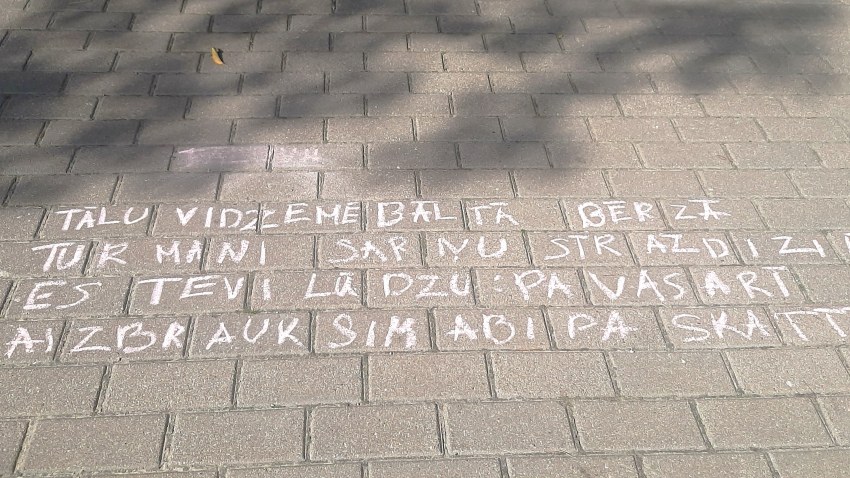 TĀLU VIDZEMĒ BĀLTĀ BĒRZĀ
TUR MANI SARŅU STRAZDIŅI
ES TEVI LŪDZU: PAVASARĪ
AIZBRAUKSIM ABI PASKATĪT